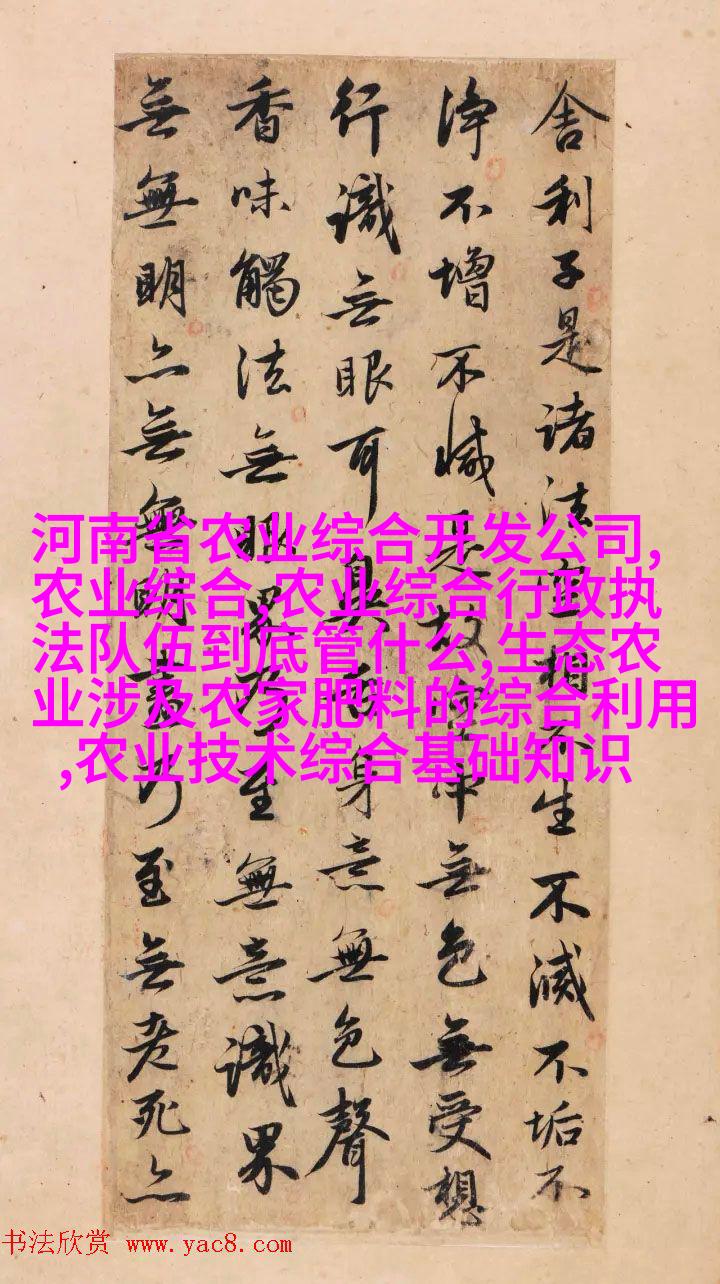 舍利子是諸法空相不生不滅不垢不
淨不增不減是故空中無色無受想
行識无眼耳鼻舌身意無色聲
香味觸法無眼界乃至無意識界
無無明亦無無明盡乃至無老死亦
河南省农业综合开发公司,
农业综合,农业综合行政执
法队伍到底管什么,生态农
业涉及农家肥料的综合利用
,农业技术综合基础知识
书法欣赏 www.yac8.com